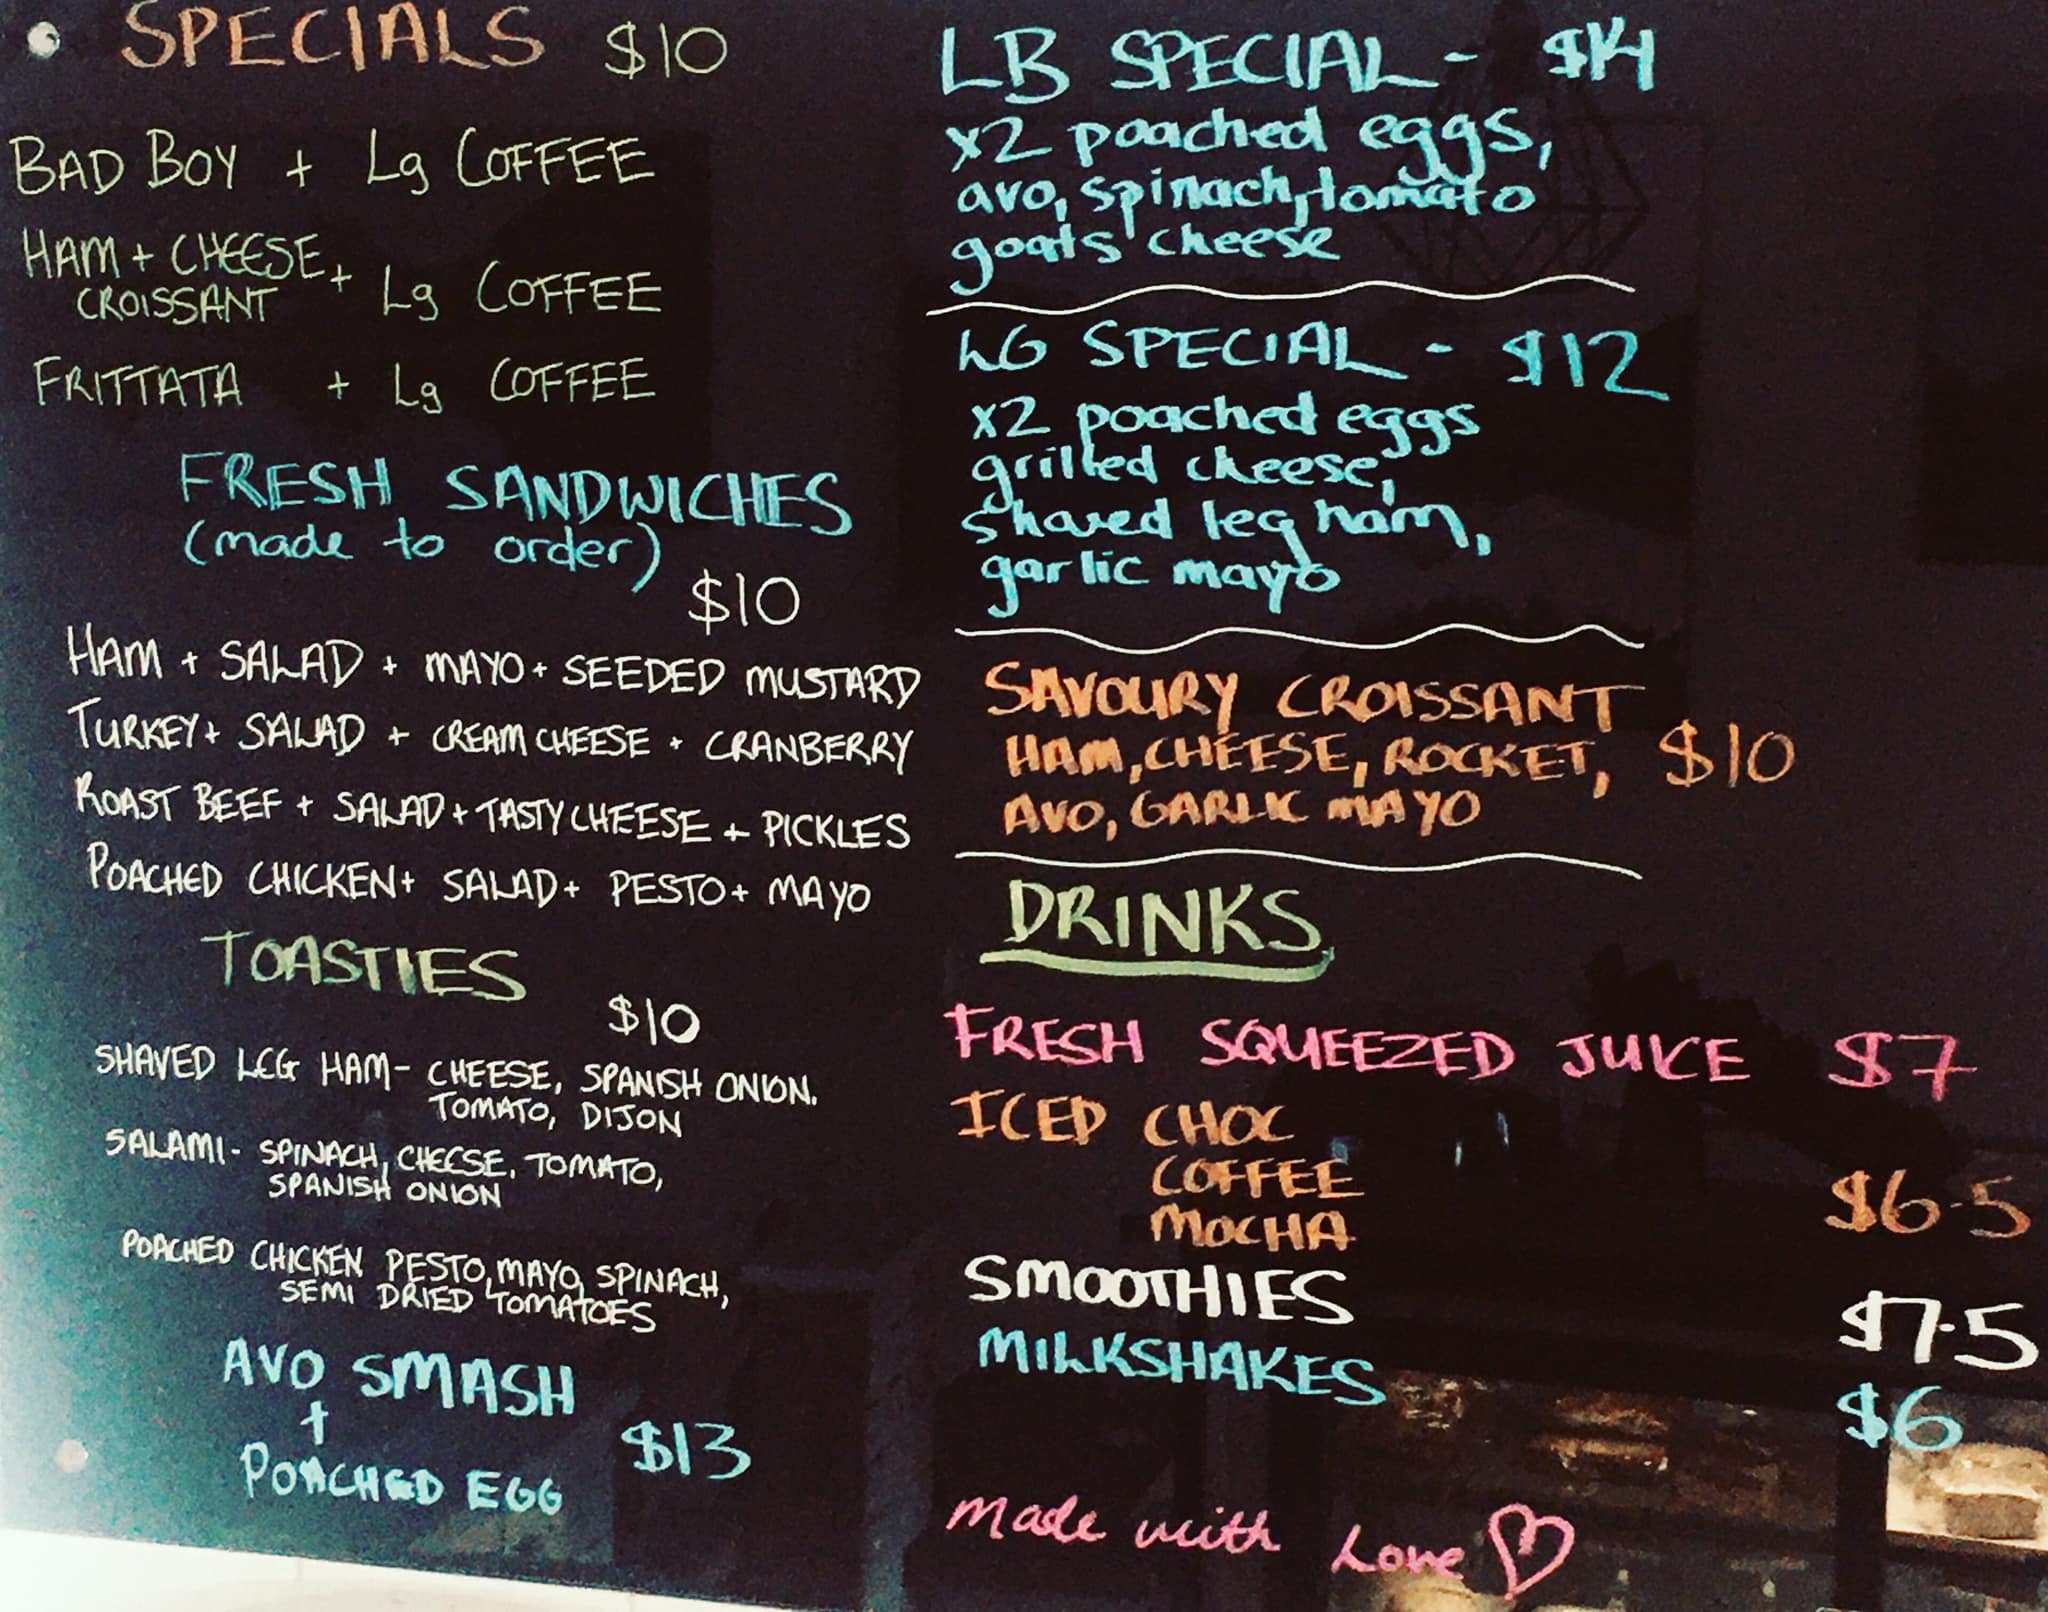 SPECIALS $10
BAD BOY + Lg COFFEE
HAM + CHEESE + Lg COFFEE
CROISSANT
FRITTATA + Lg COFFEE
FRESH SANDWICHES
(made to order)
$10
HAM + SALAD + MAYO + SEEDED MUSTARD
TURKEY + SALAD + CREAM CHEESE + CRANBERRY
ROAST BEEF + SALAD + TASTY CHEESE + PICKLES
POACHED CHICKEN + SALAD + PESTO + MAYO
TOASTIES
$10
SHAVED LEG HAM - CHEESE, SPANISH ONION.
TOMATO, DIJON
SALAMI - SPINACH, CHEESE, TOMATO,
SPANISH ONION
POACHED CHICKEN PESTO, MAYO, SPINACH,
SEMI DRIED TOMATOES
AVO SMASH
+
POACHED EGG $13
LB SPECIAL - $14
x2 poached eggs,
avo, spinach, tomato
goats' cheese
LG SPECIAL - $12
x2 poached eggs
grilled cheese,
shaved leg ham,
garlic mayo
SAVOURY CROISSANT
HAM, CHEESE, ROCKET, $10
AVO, GARLIC MAYO
DRINKS
FRESH SQUEEZED JUICE $7
ICED CHOC
COFFEE $6.5
MOCHA
SMOOTHIES $7.5
MILKSHAKES $6
made with Love